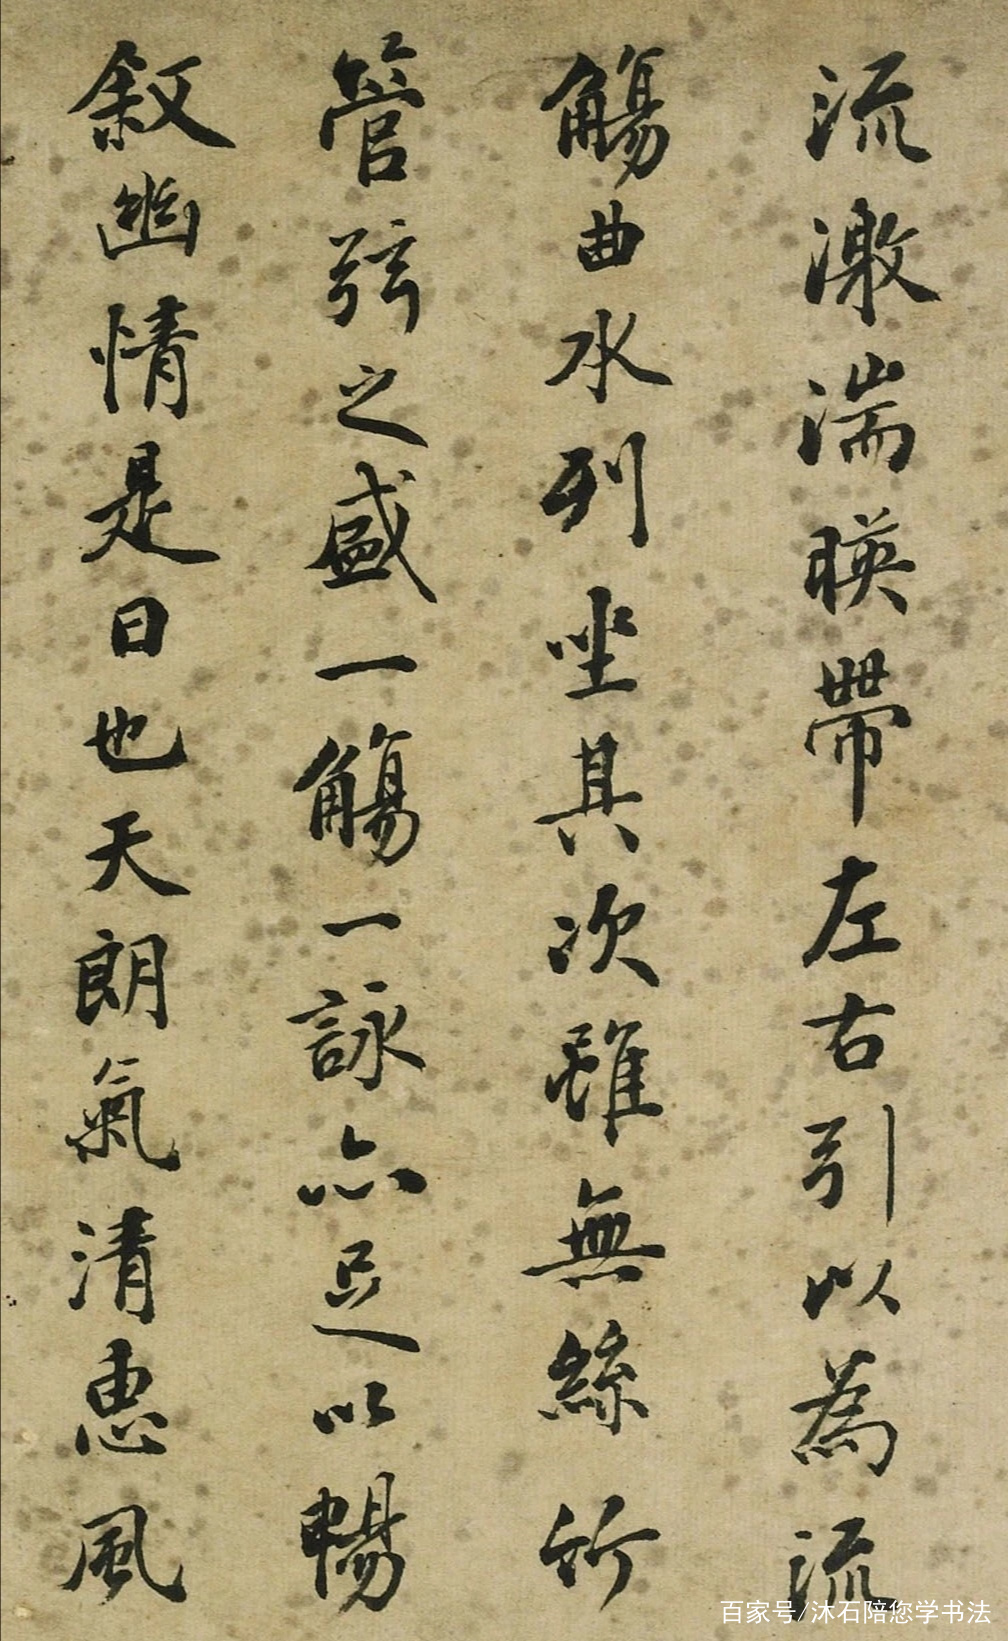 流激湍暎帶左右引以為流
觴曲水列坐其次雖無絲竹
管弦之盛一觴一詠亦足以暢
敘幽情是日也天朗氣清惠風
百家号/沐石陪您学书法